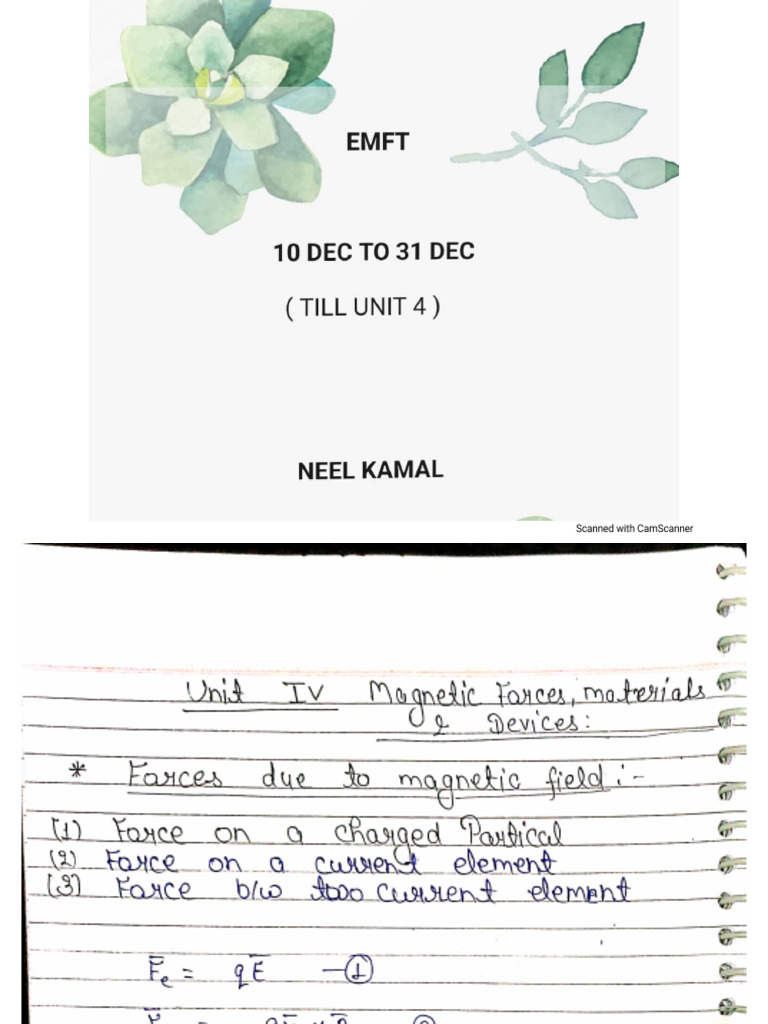 EMFT
10 DEC TO 31 DEC
( TILL UNIT 4 )
NEEL KAMAL
Scanned with CamScanner
Unit IV Magnetic Forces, materials
& Devices:
* Forces due to magnetic field :-
(1) Force on a charged Partical
(2) Force on a current element
(3) Force b/w two current element
F̅e = qE̅ —①